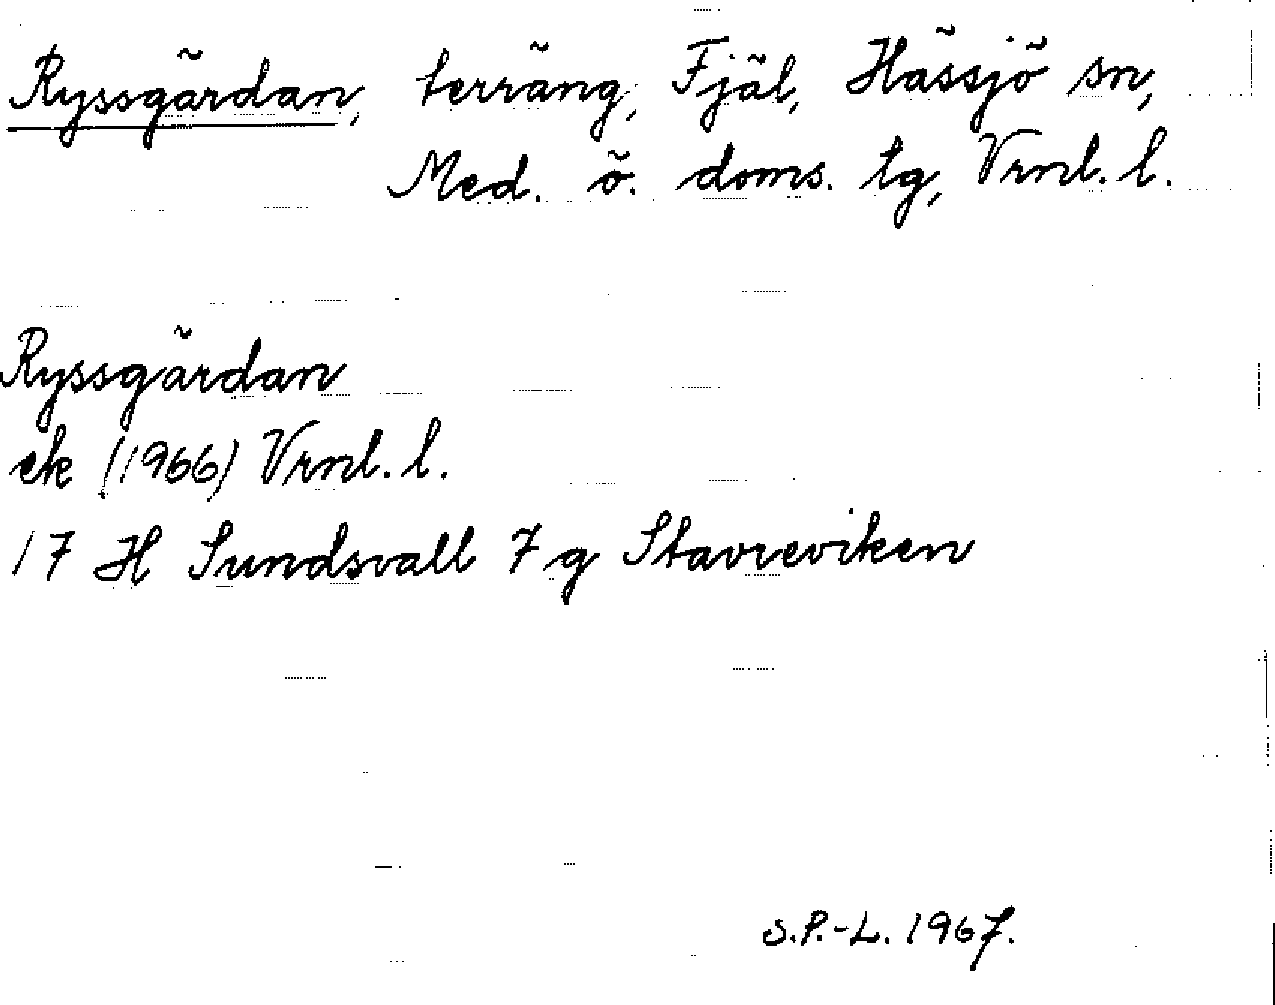 Ryssgärdan, terräng, Fjäl, Hässjö sn,
Med. ö. doms. tg, Vrnl. l.
Ryssgärdan
ek (1966) Vrnl. l.
17 H Sundsvall 7 g Stavreviken
S.P.-L. 1967.